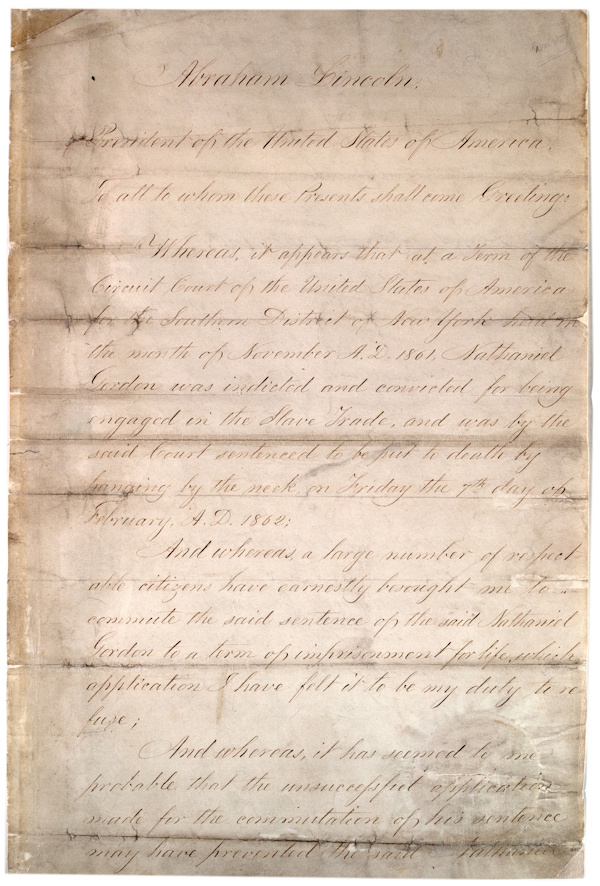 Abraham Lincoln,
President of the United States of America,
To all to whom these Presents shall come Greeting:
Whereas, it appears that at a Term of the
Circuit Court of the United States of America
for the Southern District of New York held in
the month of November A.D. 1861, Nathaniel
Gordon was indicted and convicted for being
engaged in the Slave Trade, and was by the
said Court sentenced to be put to death by
hanging by the neck, on Friday the 7th day of
February, A.D. 1862;
And whereas, a large number of respect
able citizens have earnestly besought me to
commute the said sentence of the said Nathaniel
Gordon to a term of imprisonment for life, which
application I have felt it to be my duty to re
fuse;
And whereas, it has seemed to me
probable that the unsuccessful application
made for the commutation of his sentence
may have prevented the said Nathaniel